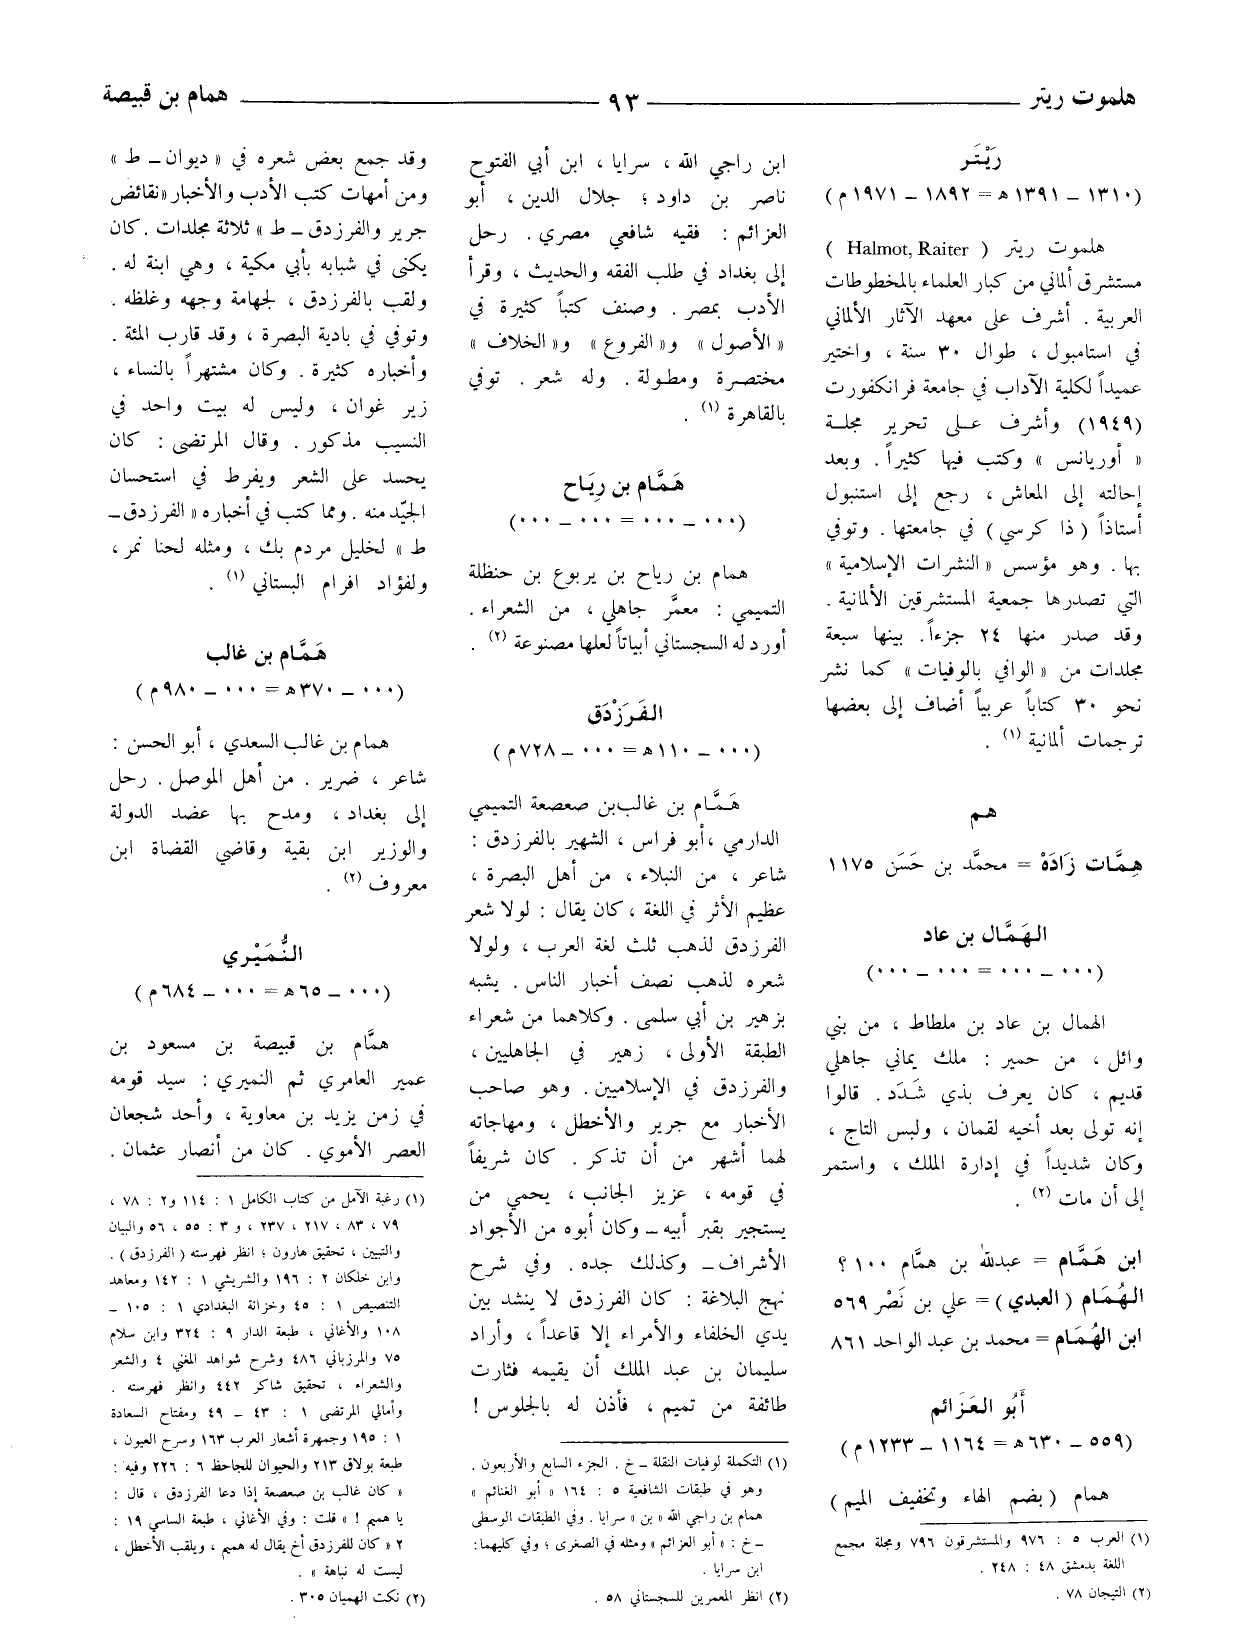 هلموت ريتر
٩٣
همام بن قبيصة
رَيْتَر
(١٣١٠ ــ ١٣٩١ ه = ١٨٩٢ ــ ١٩٧١ م)
هلموت ريتر ( Halmot, Raiter )
مستشرق ألماني من كبار العلماء بالمخطوطات
العربية . أشرف على معهد الآثار الألماني
في استامبول ، طوال ٣٠ سنة ، واختير
عميداً لكلية الآداب في جامعة فرانكفورت
(١٩٤٩) وأشرف على تحرير مجلة
« أوريانس » وكتب فيها كثيراً . وبعد
إحالته إلى المعاش ، رجع إلى استنبول
أستاذاً ( ذا كرسي ) في جامعتها . وتوفي
بها . وهو مؤسس «النشرات الإسلامية»
التي تصدرها جمعية المستشرقين الألمانية .
وقد صدر منها ٢٤ جزءاً. بينها سبعة
مجلدات من «الوافي بالوفيات» كما نشر
نحو ٣٠ كتاباً عربياً أضاف إلى بعضها
ترجمات ألمانية (١) .
هم
هِمَّات زَادَهْ = محمَّد بن حَسَن ١١٧٥
الهَمَّال بن عاد
(٠٠٠ ــ ٠٠٠ = ٠٠٠ ــ ٠٠٠)
الهمال بن عاد بن ملطاط ، من بني
وائل ، من حمير : ملك يماني جاهلي
قديم ، كان يعرف بذي شَدَد. قالوا
إنه تولى بعد أخيه لقمان ، ولبس التاج ،
وكان شديداً في إدارة الملك ، واستمر
إلى أن مات (٢) .
ابن هَمَّام = عبدالله بن همَّام ١٠٠ ؟
الهُمَام (العبدي) = علي بن نَصْر ٥٦٩
ابن الهُمَام = محمد بن عبد الواحد ٨٦١
أَبُو العَزَائم
(٥٥٩ ــ ٦٣٠ه = ١١٦٤ ــ ١٢٣٣م)
همام (بضم الهاء وتخفيف الميم)
(١) العرب ٥ : ٩٧٦ والمستشرقون ٧٩٦ ومجلة مجمع
اللغة بدمشق ٤٨ : ٢٤٨ .
(٢) التيجان ٧٨ .
ابن راجي الله ، سرايا ، ابن أبي الفتوح
ناصر بن داود ؛ جلال الدين ، أبو
العزائم : فقيه شافعي مصري. رحل
إلى بغداد في طلب الفقه والحديث ، وقرأ
الأدب بمصر . وصنف كتباً كثيرة في
«الأصول» و«الفروع» و«الخلاف»
مختصرة ومطولة. وله شعر. توفي
بالقاهرة (١) .
هَمَّام بن رِيَاح
(٠٠٠ ــ ٠٠٠ = ٠٠٠ ــ ٠٠٠)
همام بن رياح بن يربوع بن حنظلة
التميمي : معمَّر جاهلي ، من الشعراء.
أورد له السجستاني أبياتاً لعلها مصنوعة (٢) .
الفَرَزْدَق
(٠٠٠ ــ ١١٠ه = ٠٠٠ ــ ٧٢٨م)
هَمَّام بن غالب بن صعصعة التميمي
الدارمي ، أبو فراس ، الشهير بالفرزدق :
شاعر ، من النبلاء ، من أهل البصرة ،
عظيم الأثر في اللغة ، كان يقال : لولا شعر
الفرزدق لذهب ثلث لغة العرب ، ولولا
شعره لذهب نصف أخبار الناس. يشبه
بزهير بن أبي سلمى . وكلاهما من شعراء
الطبقة الأولى ، زهير في الجاهليين ،
والفرزدق في الإسلاميين. وهو صاحب
الأخبار مع جرير والأخطل ، ومهاجاته
لهما أشهر من أن تذكر. كان شريفاً
في قومه ، عزيز الجانب ، يحمي من
يستجير بقبر أبيه ــ وكان أبوه من الأجواد
الأشراف ــ وكذلك جده. وفي شرح
نهج البلاغة : كان الفرزدق لا ينشد بين
يدي الخلفاء والأمراء إلا قاعداً ، وأراد
سليمان بن عبد الملك أن يقيمه فثارت
طائفة من تميم ، فأذن له بالجلوس !
(١) التكملة لوفيات النقلة ــ خ . الجزء السابع والأربعون .
وهو في طبقات الشافعية ٥ : ١٦٤ « أبو الغنائم »
همام بن راجي الله «بن» سرايا . وفي الطبقات الوسطى
ــ خ : «أبو العزائم» ومثله في الصغرى ؛ وفي كليهما:
ابن سرايا .
(٢) انظر المعمرين للسجستاني ٥٨ .
وقد جمع بعض شعره في «ديوان ــ ط»
ومن أمهات كتب الأدب والأخبار «نقائض
جرير والفرزدق ــ ط» ثلاثة مجلدات . كان
يكنى في شبابه بأبي مكية ، وهي ابنة له.
ولقب بالفرزدق ، لجهامة وجهه وغلظه .
وتوفي في بادية البصرة ، وقد قارب المئة .
وأخباره كثيرة. وكان مشتهراً بالنساء ،
زير غوان ، وليس له بيت واحد في
النسيب مذكور. وقال المرتضى : كان
يحسد على الشعر ويفرط في استحسان
الجيّد منه . ومما كتب في أخباره «الفرزدق ــ
ط» لخليل مردم بك ، ومثله لحنا نمر ،
ولفؤاد افرام البستاني (١) .
هَمَّام بن غالب
(٠٠٠ ــ ٣٧٠ه = ٠٠٠ ــ ٩٨٠م)
همام بن غالب السعدي ، أبو الحسن :
شاعر ، ضرير . من أهل الموصل . رحل
إلى بغداد ، ومدح بها عضد الدولة
والوزير ابن بقية وقاضي القضاة ابن
معروف (٢) .
النُّمَيْري
(٠٠٠ ــ ٦٥ه = ٠٠٠ ــ ٦٨٤م)
همَّام بن قبيصة بن مسعود بن
عمير العامري ثم النميري : سيد قومه
في زمن يزيد بن معاوية ، وأحد شجعان
العصر الأموي. كان من أنصار عثمان.
(١) رغبة الآمل من كتاب الكامل ١ : ١١٤ و٢ : ٧٨ ،
٧٩ ، ٨٣ ، ٢١٧ ، ٢٣٧ ، و ٣ : ٥٥ ، ٥٦ والبيان
والتبيين ، تحقيق هارون ؛ انظر فهرسته (الفرزدق) .
وابن خلكان ٢ : ١٩٦ والشريشي ١ : ١٤٢ ومعاهد
التنصيص ١ : ٤٥ وخزانة البغدادي ١ : ١٠٥ ــ
١٠٨ والأغاني ، طبعة الدار ٩ : ٣٢٤ وابن سلام
٧٥ والمرزباني ٤٨٦ وشرح شواهد المغني ٤ والشعر
والشعراء ، تحقيق شاكر ٤٤٢ وانظر فهرسته .
وأمالي المرتضى ١ : ٤٣ ــ ٤٩ ومفتاح السعادة
١ : ١٩٥ وجمهرة أشعار العرب ١٦٣ وسرح العيون ،
طبعة بولاق ٢١٣ والحيوان للجاحظ ٦ : ٢٢٦ وفيه :
« كان غالب بن صعصعة إذا دعا الفرزدق ، قال :
يا هميم ! » قلت : وفي الأغاني ، طبعة الساسي ١٩ :
٢ « كان للفرزدق أخ يقال له هميم ، ويلقب الأخطل ،
ليست له نباهة » .
(٢) نكت الهميان ٣٠٥ .